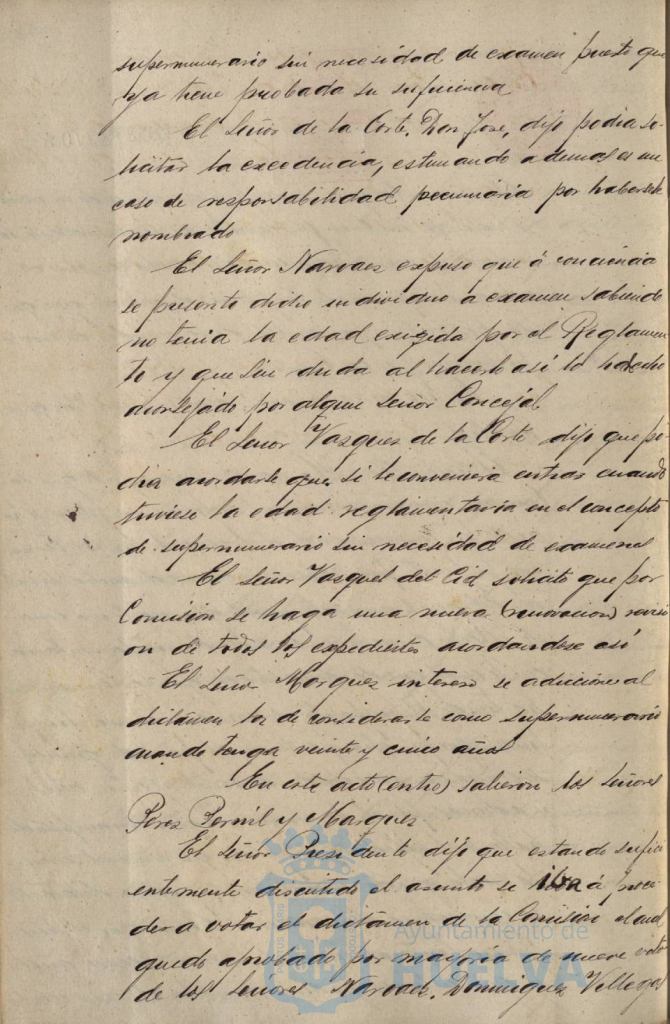 supernumerario sin necesidad de examen puesto que
ya tiene probada su suficiencia
El Señor de la Corte, Don Jose, dijo podia so-
licitar la excedencia, estimando ademas es un
caso de responsabilidad pecuniaria por habersele
nombrado
El Señor Narvaez expuso que á conciencia
se presento dicho individuo a examen sabiendo
no tenia la edad exigida por el Reglamen-
to y que sin duda al hacerlo asi lo ha hecho
aconsejado por algun Señor Concejal
El Señor Vazquez de la Corte dijo que po-
dia acordarse que si le conviniera entrar cuando
tuviese la edad reglamentaria en el concepto
de supernumerario sin necesidad de examenes
El Señor Vazquez del Cid solicitó que por
Comision se haga una nueva (renovacion) revisi
on de todos los expedientes acordandose asi
El Señor Marquez intereso se adicione al
dictámen lo de considerarle como supernumerario
cuando tenga veinte y cinco años
En este acto (entro) salieron los Señores
Perez Pernil y Marquez
El Señor Presidente dijo que estando sufici
entemente discutido el asunto se iba á proce
der a votar el dictámen de la Comision el cual
quedo aprobado por mayoria de nueve votos
de los Señores Narvaez, Dominguez Villegas
Ayuntamiento de
HUELVA